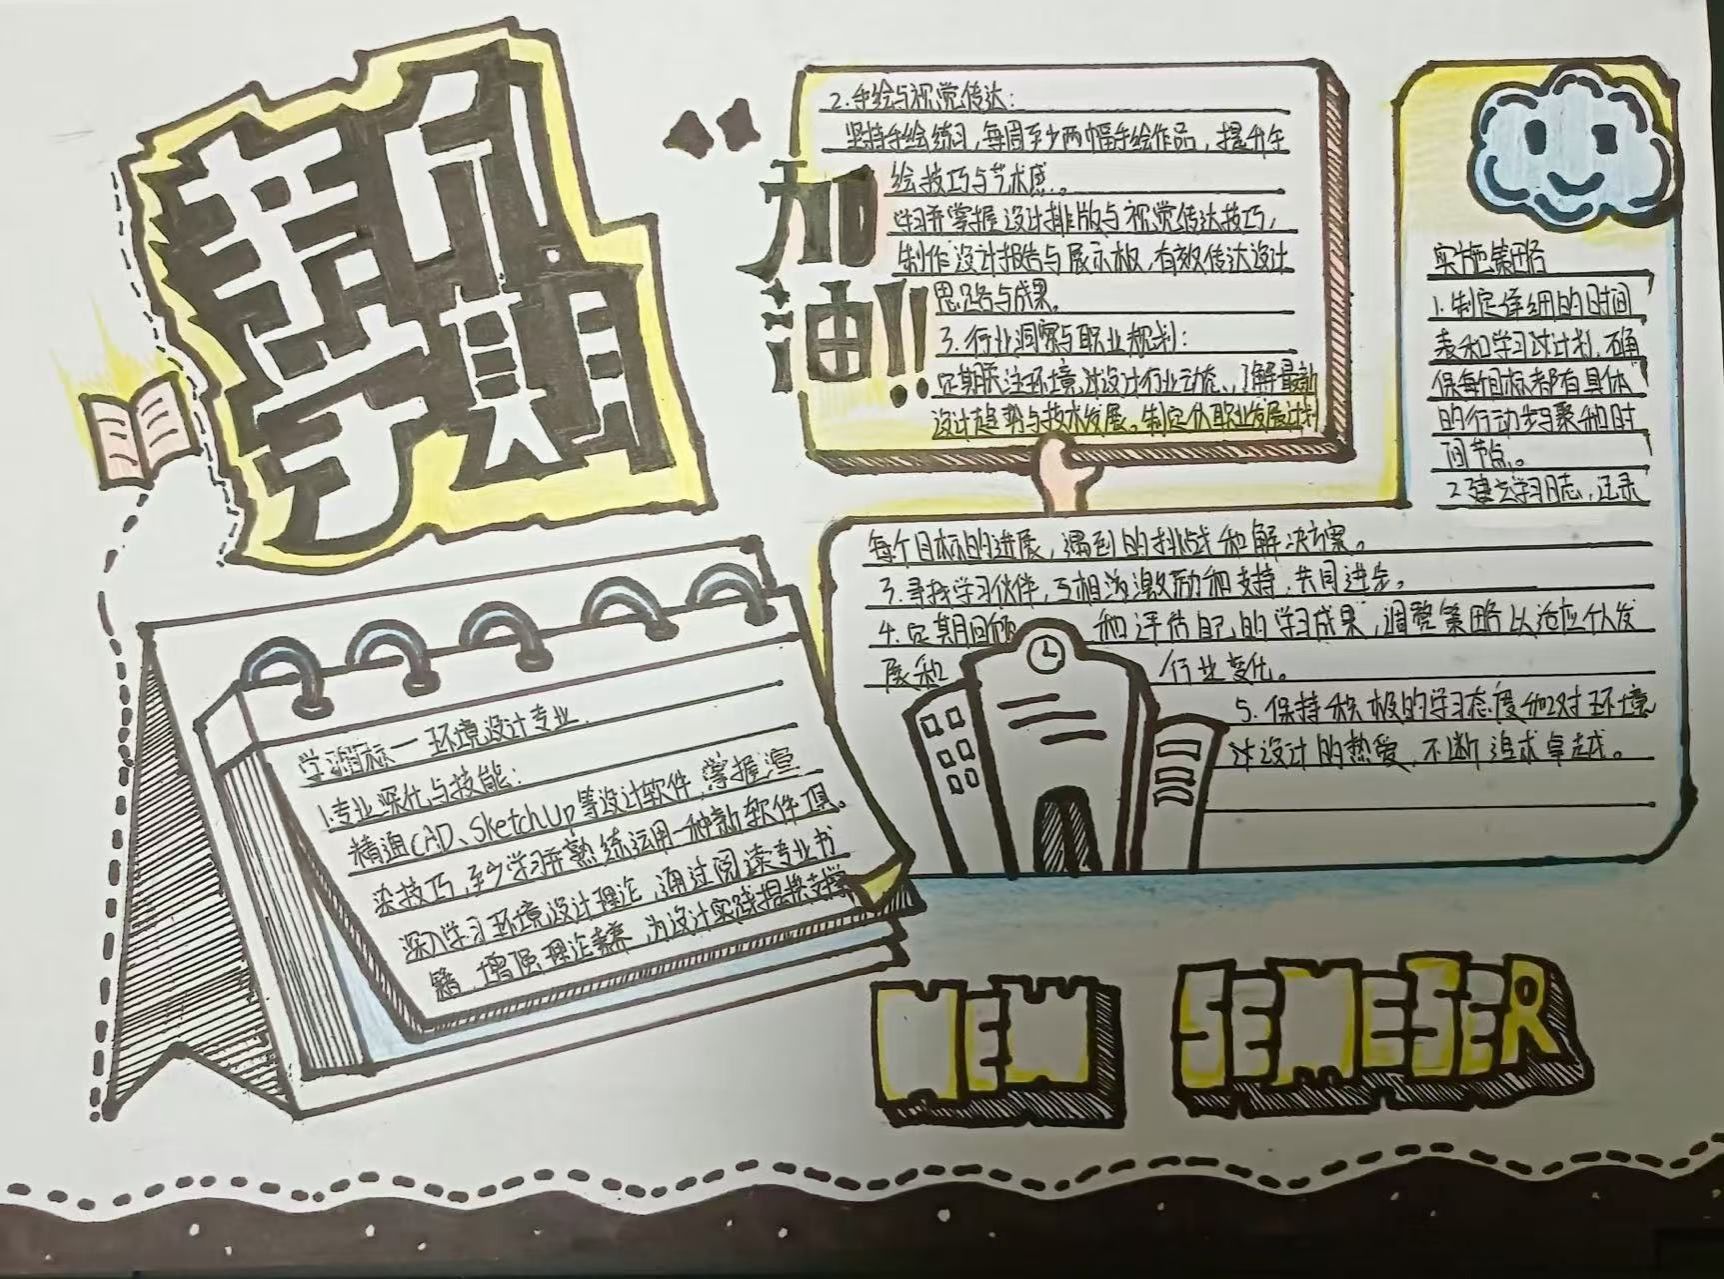 新学期
加油!!
学习目标一环境设计专业
1.专业深化与技能:
精通CAD、SketchUp等设计软件,掌握渲
染技巧,至少学习并熟练运用一种新软件具。
深入学习环境设计理论,通过阅读专业书
籍,增强理论素养,为设计实践提换支撑
2.手绘与视觉传达:
坚持手绘练习,每周至少两幅手绘作品,提升午
绘技巧与艺术感。
学习并掌握设计排版与视觉传达技巧,
制作设计报告与展示板,有效传达设计
思路与成果。
3.行业洞察与职业规划:
定期关注环境设计行业动态,了解最新
设计趋势与技术发展。制定个职业发展计划
实施策略
1.制定详细的时间
表和学习计划,确
保每目标都有具体
的行动步骤和时
间节点。
2建立学习日志,记录
每个目标的进展,遇到的挑战和解决方案。
3.寻找学习伙伴,互相激励和支持,共同进步。
4.定期回顾 和评估自己的学习成果,调整策略以适应个发
展和 行业变化。
5.保持积极的学习态度和对环境
设计的热爱,不断追求卓越。
NEW SEMESER